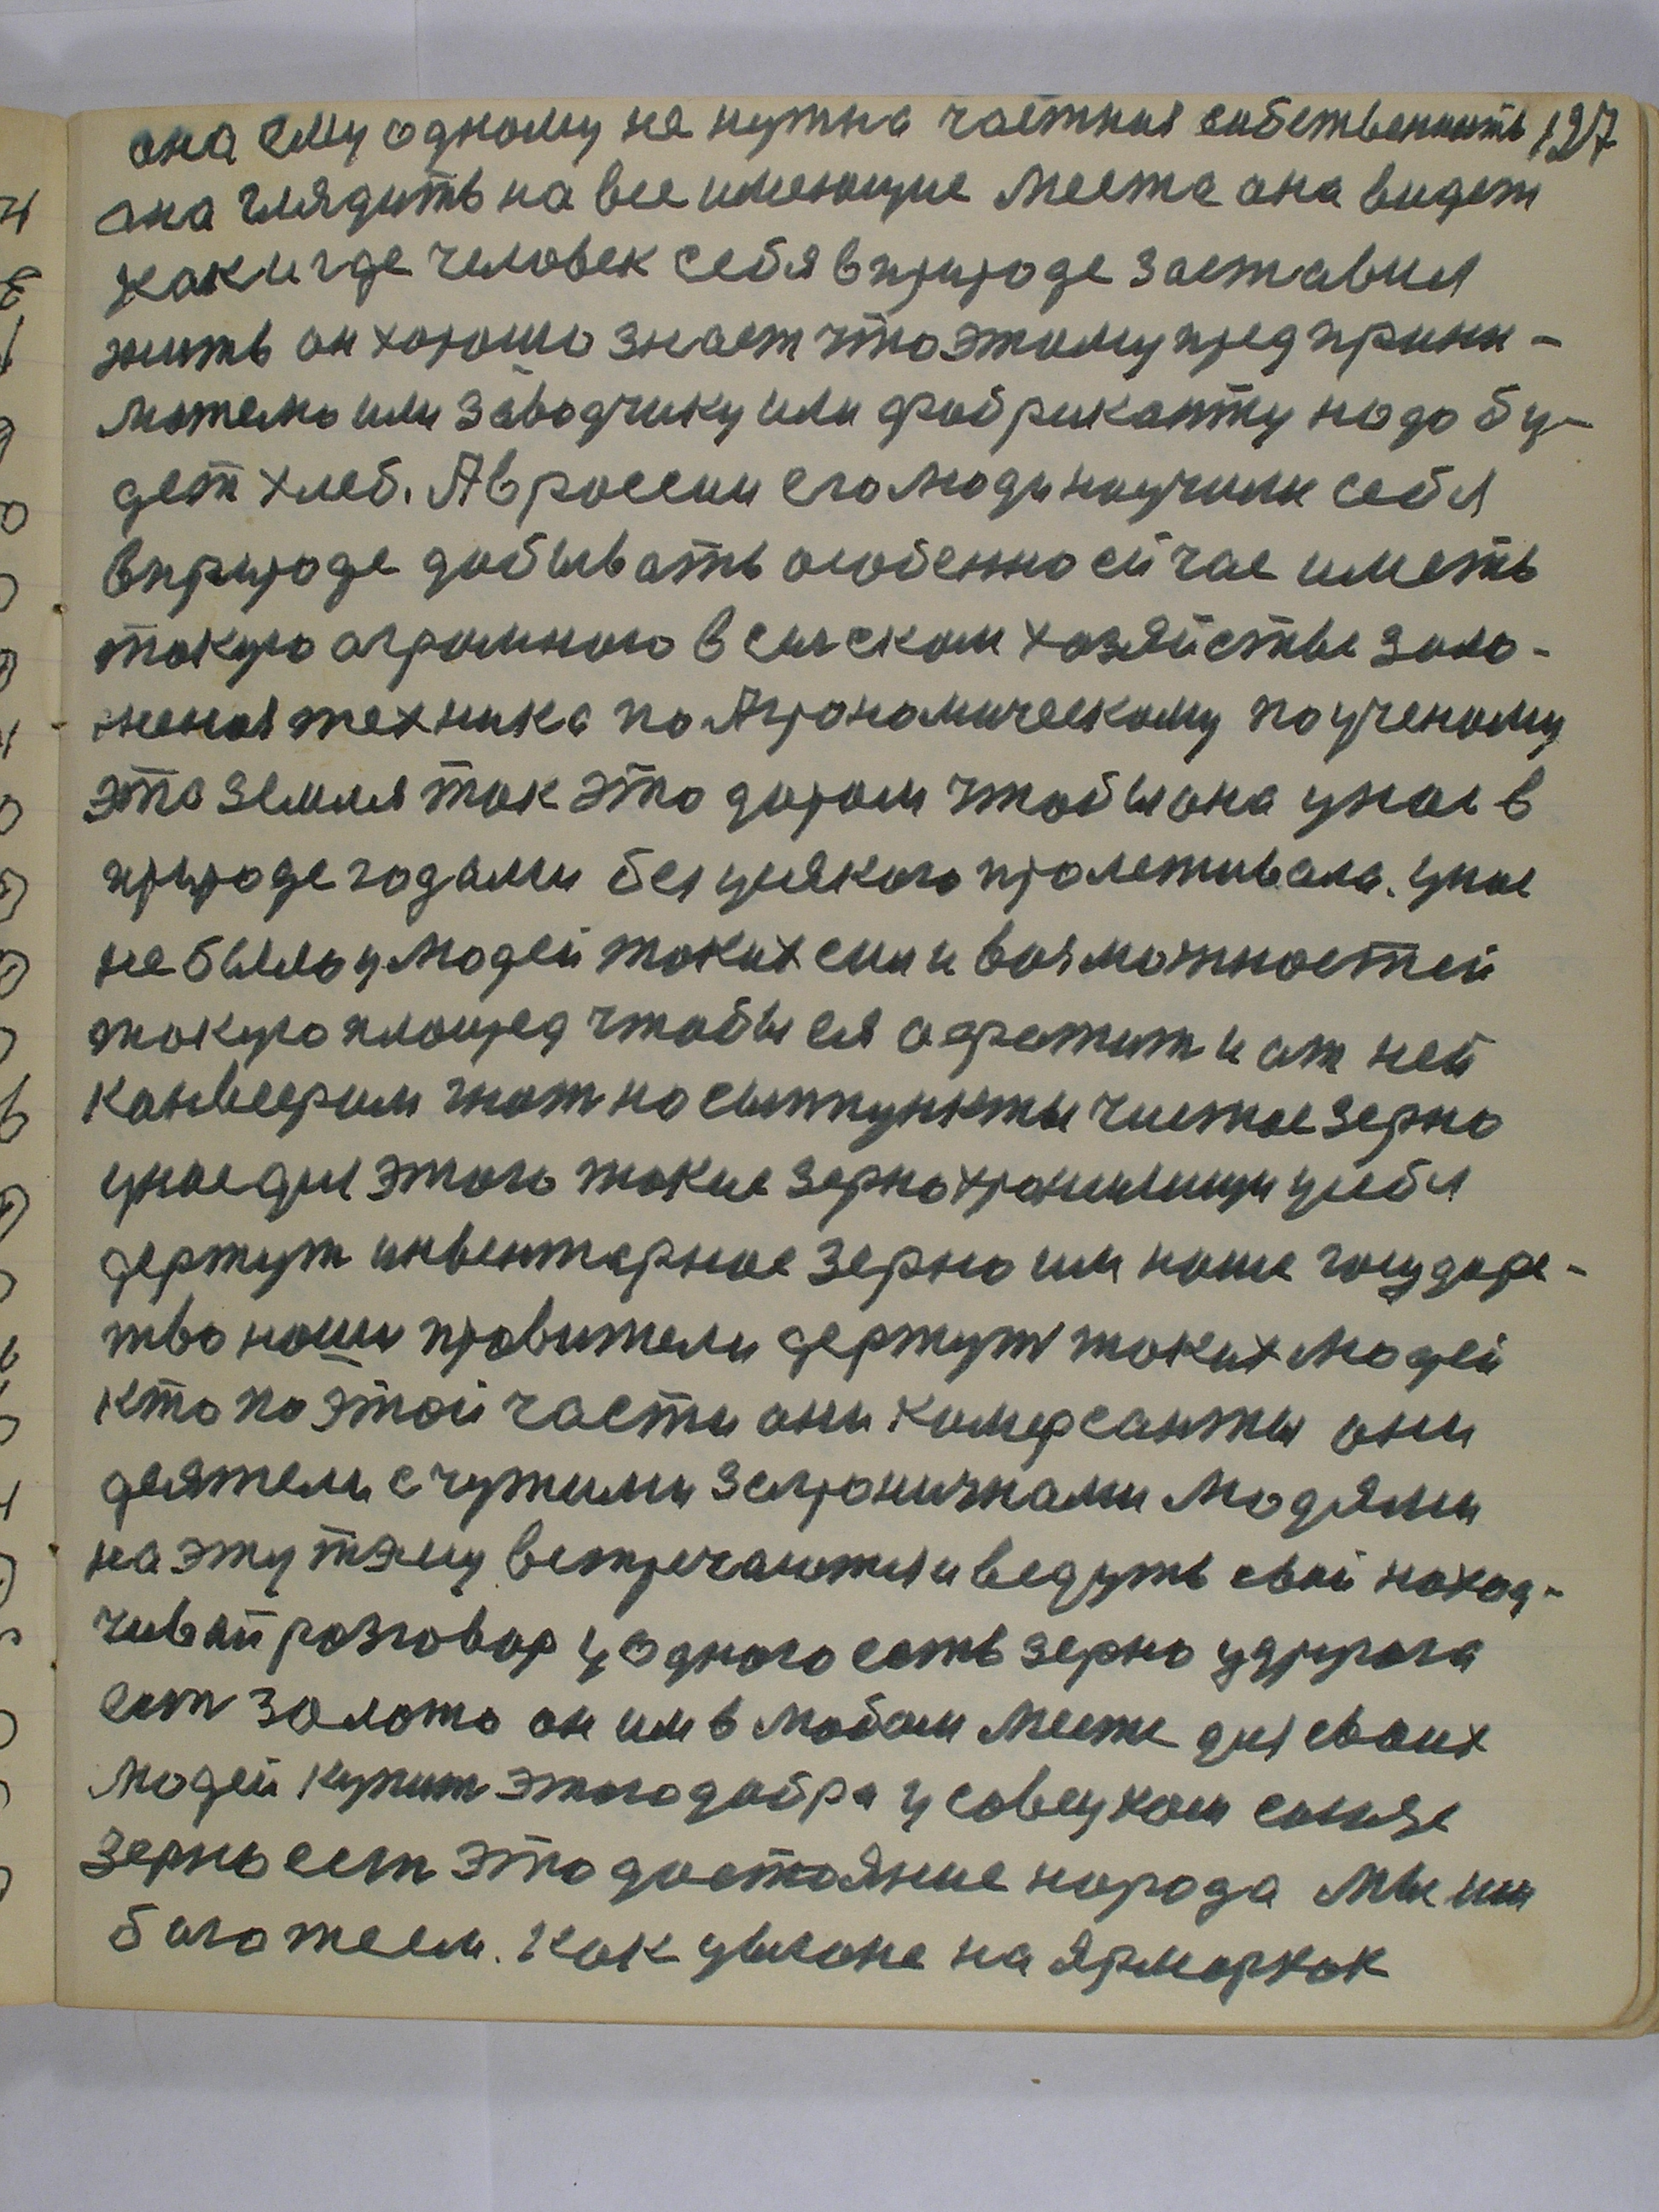 она ему одному не нужна частная собственность 127
она глядить на все имеющие места она видет
как и где человек себя в природе заставил
жить он хорошо знает что этому предприни-
мателю или заводчику или фабриканту надо бу-
дет хлеб. А в россии его люди научили себя
в природе добывать особенно сичас иметь
такую огромного в сельском хозяйстве зало-
женая техника по Агрономическому по ученому
эта земля так это даром чтобы она унас в
природе годами без усякого пролетивала. унас
не было у людей таких сил и возможностей
такую площед чтобы ея офратит и от ней
конвеером гнат на сыппункты чистое зерно
унас для этого такие зернохранилищи у себя
держут инвентарное зерно им наше государс-
тво наши правители держут таких людей
кто по этой части они комерсанты они
деятели с чужими заграничнами людями
на эту тэму встречаются и ведуть свой наход-
чивай разговор у одного есть зерно у другога
ест золото он им в любом месте для своих
людей купит этого добра у совецком союзе
зерно ест это достояние народа мы им
богатеем. Как увагоне на ярмарках